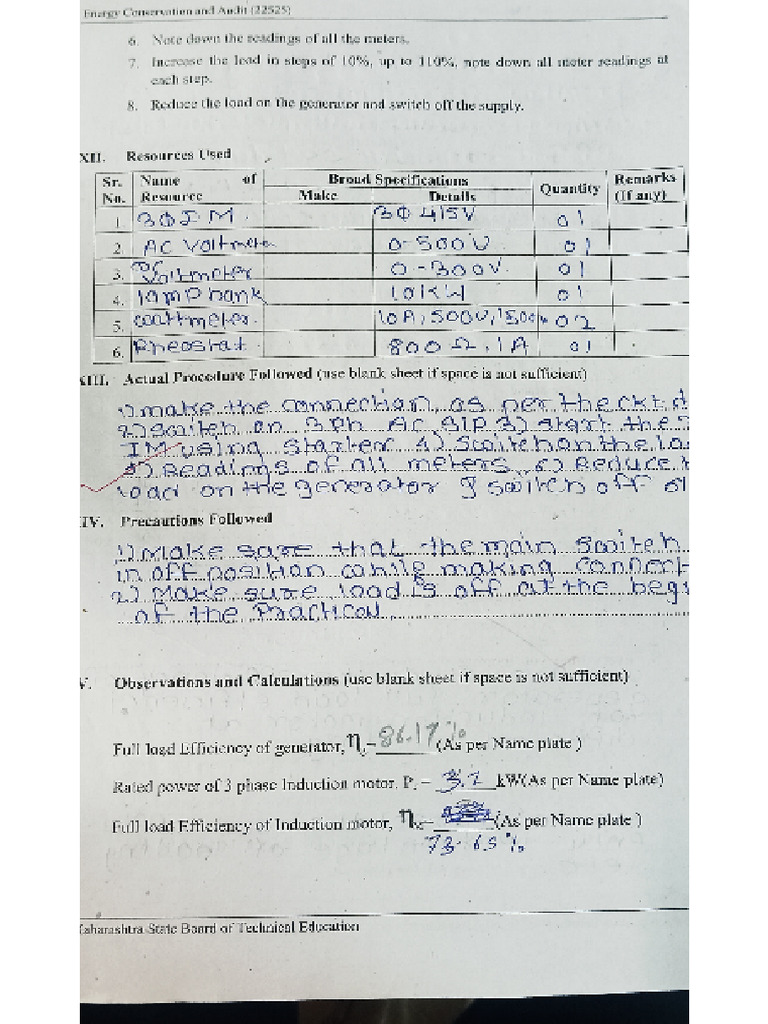 Energy Conservation and Audit (22525)
6. Note down the readings of all the meters.
7. Increase the load in steps of 10%, up to 110%, note down all meter readings at
each step.
8. Reduce the load on the generator and switch off the supply.
XII. Resources Used
Sr. No. Name of Resource Broad Specifications Make Details Quantity Remarks (If any)
1. 3Φ I M 3Φ 415V 01
2. AC Voltmeter 0-500V 01
3. DC Voltmeter 0-300V. 01
4. lamp bank 10KW 01
5. wattmeter. 10A, 500V, 02
6. Rheostat. 800Ω, 1A 01
XIII. Actual Procedure Followed (use blank sheet if space is not sufficient)
1) make the connection, as per the ckt. d
2) Switch on 3Ph AC S/P 3) start the
IM using starter 4) Switch on the loa
5) Readings of all meters 6) Reduce t
load on the generator & switch off
IV. Precautions Followed
1) Make sare that the main switch
in off position while making connect
2) Make sure load is off at the beg
of the Practical
V. Observations and Calculations (use blank sheet if space is not sufficient)
Full load Efficiency of generator, η = 86.17% (As per Name plate )
Rated power of 3 phase Induction motor, P = 3.7 kW(As per Name plate)
Full load Efficiency of Induction motor, η = (As per Name plate )
73.65%
aharashtra State Board of Technical Education